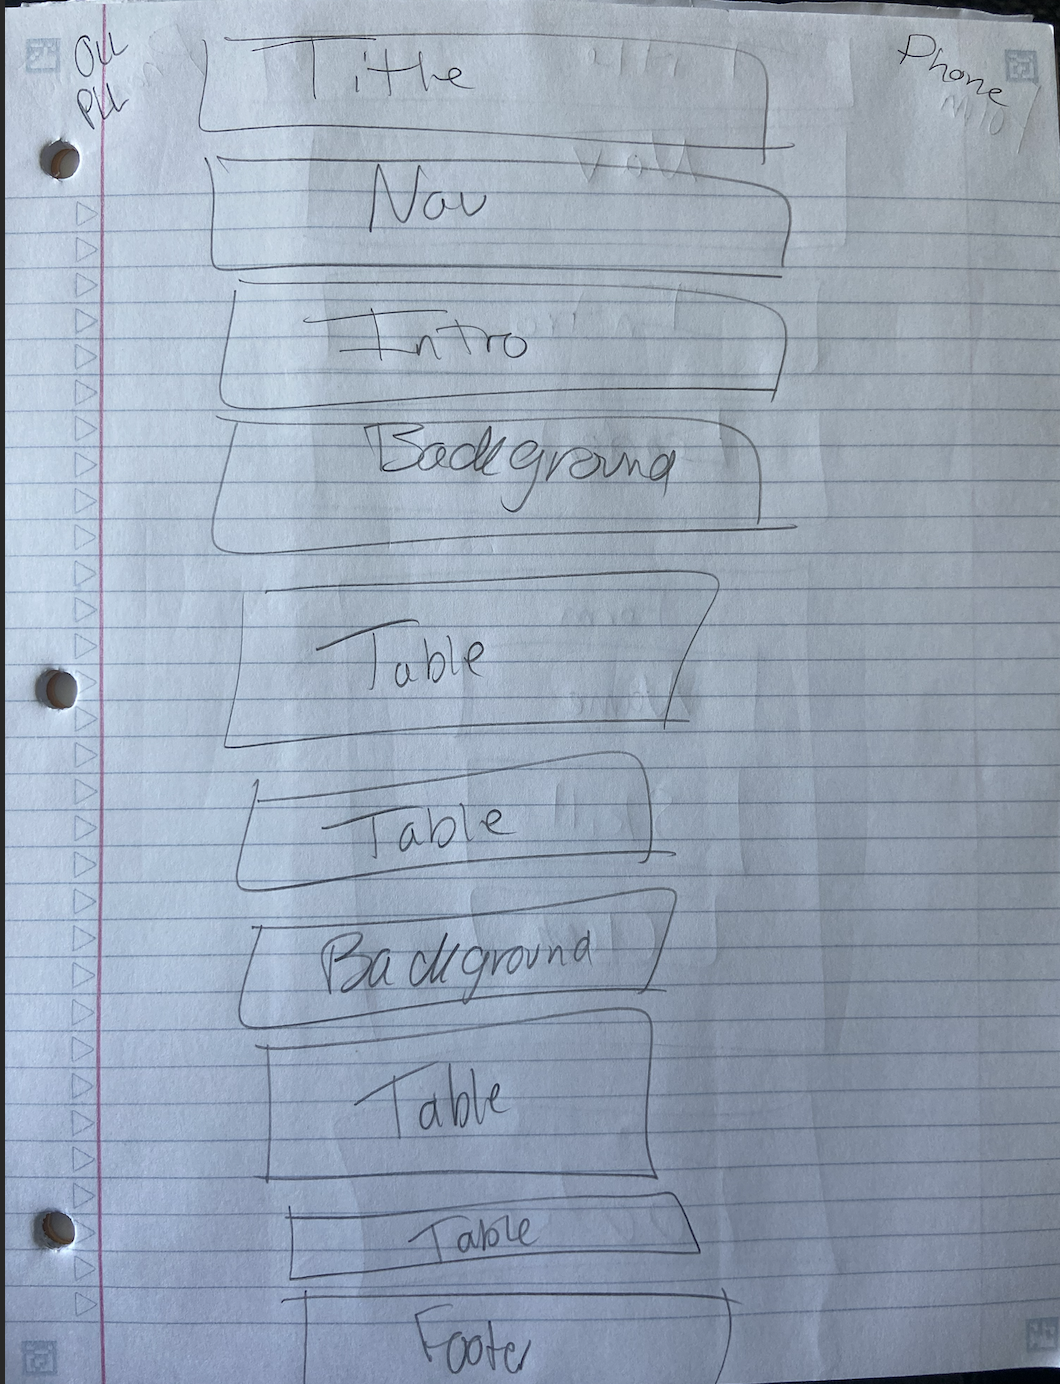 OLL
PLL
Phone
Title
Nav
Intro
Background
Table
Table
Background
Table
Table
Footer